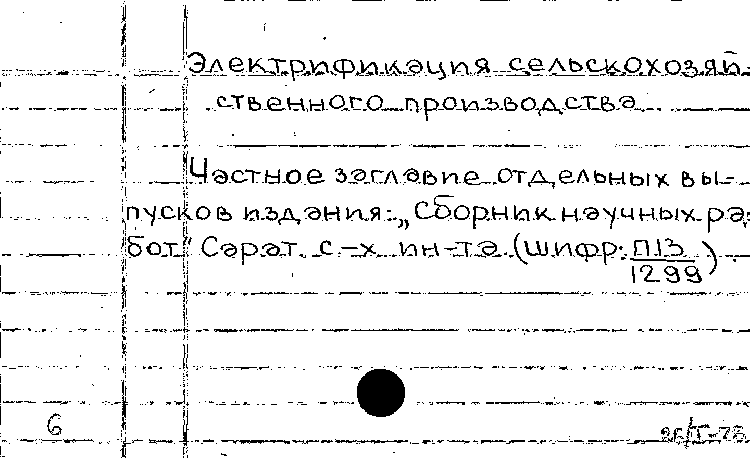 Электрификация сельскохозяй-
ственного производства
Частное заглавие отдельных вы-
пусков издания: „Сборник научных ра-
бот" Сарат. с-х ин-та (шифр: П13
1299)
6
26/I-78